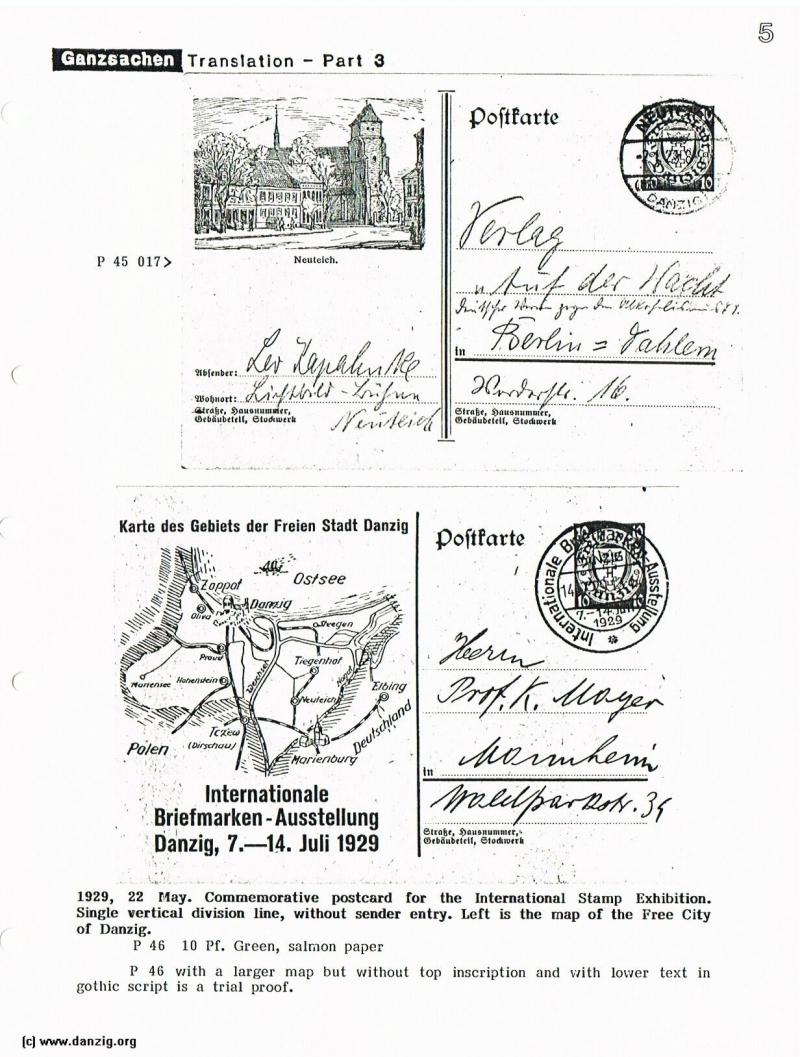 5
Ganzsachen Translation - Part 3
Postkarte
NEUTEICH
DANZIG
P 45 017>
Neuteich.
Verlag
"Auf der Wacht
Berlin = Dahlem
in
Absender: Leo
Wohnort: Lichtbild-Bühne
Straße, Hausnummer,
Gebäudeteil, Stockwerk
Neuteich
16.
Straße, Hausnummer,
Gebäudeteil, Stockwerk
Karte des Gebiets der Freien Stadt Danzig
Zoppot
Ostsee
Oliva
Danzig
Steegen
Praust
Tiegenhof
Mariensee
Hohenstein
Weichsel
Nogat
Neuteich
Elbing
Tczew
(Dirschau)
Polen
Marienburg
Deutschland
Internationale
Briefmarken-Ausstellung
Danzig, 7.—14. Juli 1929
Postkarte
Internationale Briefmarken-Ausstellung
Danzig
14
7.-14. Juli
1929
Herrn
Prof. K. Mayer
in Mannheim
Waldparkstr. 39
Straße, Hausnummer,
Gebäudeteil, Stockwerk
1929, 22 May. Commemorative postcard for the International Stamp Exhibition.
Single vertical division line, without sender entry. Left is the map of the Free City
of Danzig.
P 46 10 Pf. Green, salmon paper
P 46 with a larger map but without top inscription and with lower text in
gothic script is a trial proof.
(c) www.danzig.org